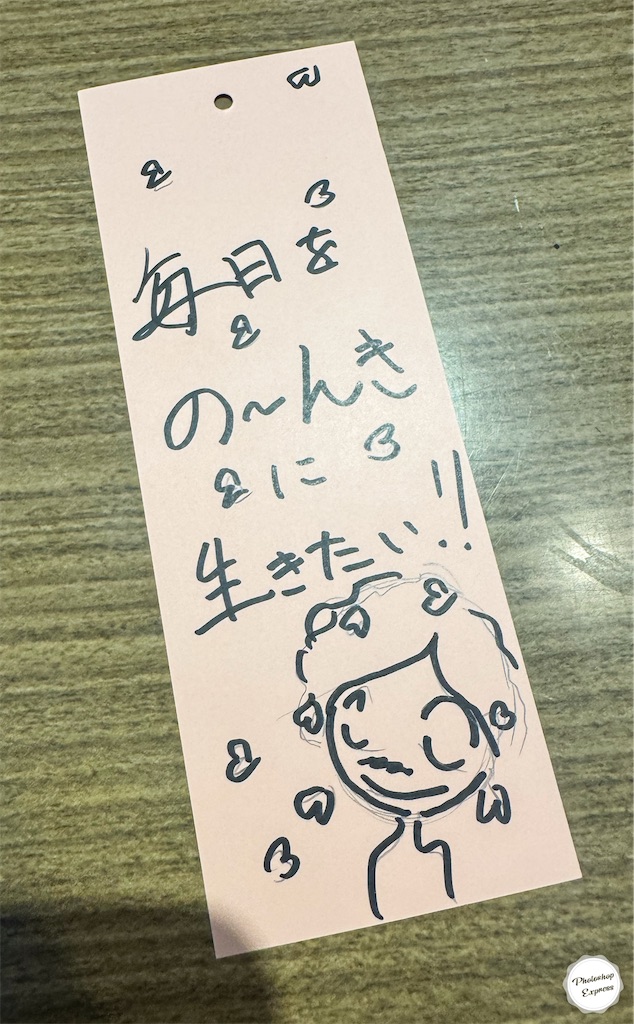 毎日を
の〜んき
に
生きたい!!
Photoshop
Express